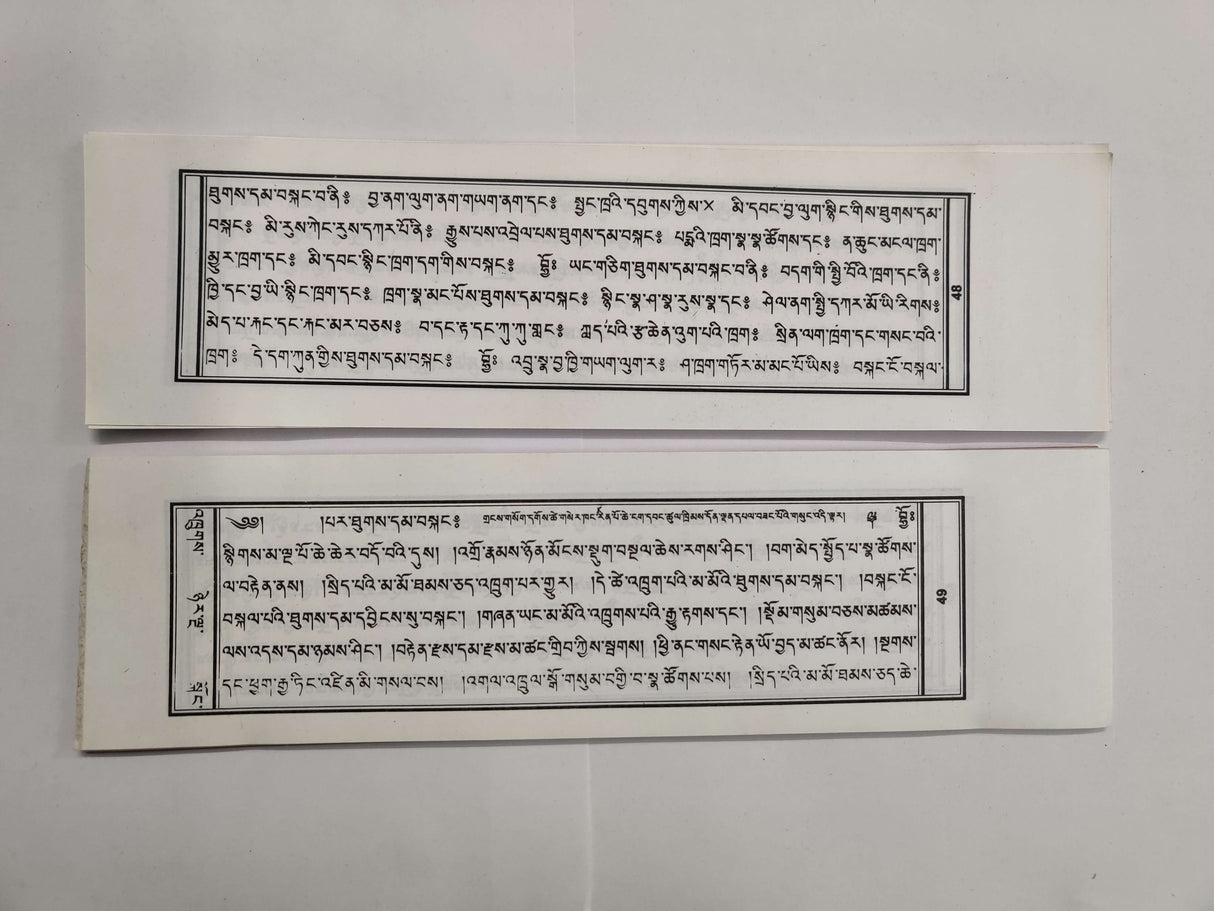 ཐུགས་དམ་བསྐང་བ་ནི༔ བྱ་ནག་ལུག་ནག་གཡག་ནག་དང༔ སྤྱང་ཁྲའི་དབུགས་ཀྱིས་× མི་དབང་བྱ་ལུག་སྙིང་གིས་ཐུགས་དམ་
བསྐང༔ མི་རུས་ཀེང་རུས་དཀར་པོ་ནི༔ རྒྱུས་པས་འབྲེལ་པས་ཐུགས་དམ་བསྐང༔ པདྨའི་ཁྲག་སྣ་སྣ་ཚོགས་དང༔ ན་ཆུང་མངལ་ཁྲག་
མྱུར་ཁྲག་དང༔ མི་དབང་སྙིང་ཁྲག་དག་གིས་བསྐང༔ བྷྱོཿ ཡང་གཅིག་ཐུགས་དམ་བསྐང་བ་ནི༔ བདག་གི་སྤྱི་བོའི་ཁྲག་དང་ནི༔
ཁྱི་དང་བྱ་ཡི་སྙིང་ཁྲག་དང༔ ཁྲག་སྣ་མང་པོས་ཐུགས་དམ་བསྐང༔ སྙིང་སྣ་ཤ་སྣ་རུས་སྣ་དང༔ ཤེལ་ནག་སྤྱི་དཀར་མོ་ཡི་རིགས༔
མེད་པ་རྐང་དང་རྐང་མར་བཅས༔ བ་དང་རྟ་དང་ཀུ་ཀུ་གླང༔ ཀླད་པའི་རྩ་ཆེན་འུག་པའི་ཁྲག༔ སྲིན་ལག་ཁྲག་དང་གསང་བའི་
ཁྲག༔ དེ་དག་ཀུན་གྱིས་ཐུགས་དམ་བསྐང༔ བྷྱོཿ འབྲུ་སྣ་བྱ་ཁྱི་གཡག་ལུག་ར༔ ཤ་ཁྲག་གཏོར་མ་མང་པོ་ཡིས༔ བསྐང་ངོ་བསྐལ་
48
༄༅། །པར་ཐུགས་དམ་བསྐང༔ བྷྱོཿ
སྙིགས་མ་ལྔ་པོ་ཆེ་ཆེར་བདོ་བའི་དུས། །འགྲོ་རྣམས་ཉོན་མོངས་སྡུག་བསྔལ་ཆེས་རགས་ཤིང་། །བག་མེད་སྤྱོད་པ་སྣ་ཚོགས་
ལ་བརྟེན་ནས། །སྲིད་པའི་མ་མོ་ཐམས་ཅད་འཁྲུག་པར་གྱུར། །དེ་ཚེ་འཁྲུག་པའི་མ་མོའི་ཐུགས་དམ་བསྐང་། །བསྐང་ངོ་
བསྐལ་པའི་ཐུགས་དམ་དབྱིངས་སུ་བསྐང་། །གཞན་ཡང་མ་མོའི་འཁྲུགས་པའི་རྒྱུ་རྟགས་དང་། །སྡོམ་གསུམ་བཅས་མཚམས་
ལས་འདས་དམ་ཉམས་ཤིང་། །བརྟེན་རྫས་དམ་རྫས་མ་ཚང་གྲིབ་ཀྱིས་སྦགས། །ཕྱི་ནང་གསང་རྟེན་ཡོ་བྱད་མ་ཚང་ནོར། །སྔགས་
དང་ཕྱག་རྒྱ་ཏིང་འཛིན་མི་གསལ་བས། །འགལ་འཁྲུལ་སྒོ་གསུམ་བགྱི་བ་སྣ་ཚོགས་པས། །སྲིད་པའི་མ་མོ་ཐམས་ཅད་ཆེ་
49